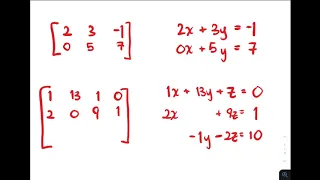 2 3 -1
0 5 7
2x + 3y = -1
0x + 5y = 7
1 13 1 0
2 0 9 1
1x + 13y + z = 0
2x + 9z = 1
-1y - 2z = 10